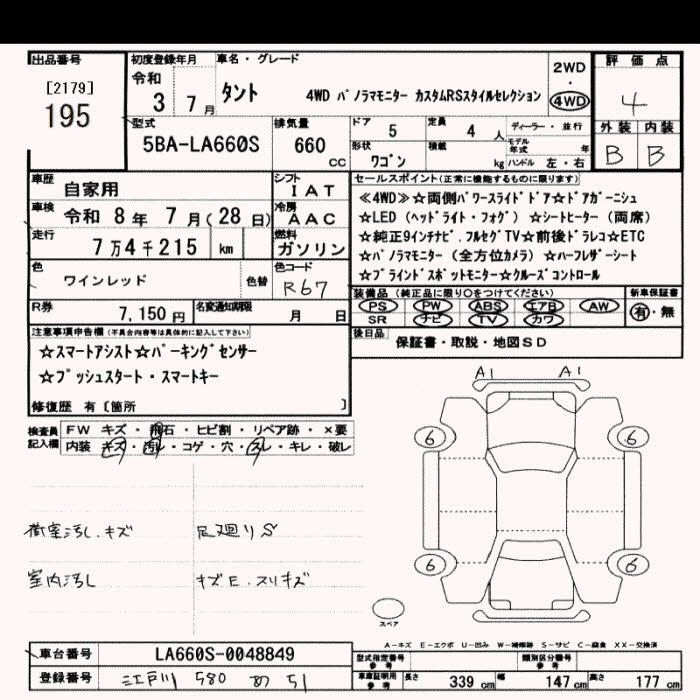 出品番号
[2179]
195
初度登録年月
令和
3 7 月
車名・グレード
タント 4WD パノラマモニター カスタムRSスタイルセレクション
2WD
・
4WD
評価点
4
外装 内装
B B
型式
5BA-LA660S
排気量
660 cc
ドア 5
定員 4 人
ディーラー・並行
形状 ワゴン
積載 kg
モデル年式 年
ハンドル 左・右
車歴 自家用
シフト IAT
車検 令和 8年 7月(28日)
冷房 AAC
走行 7万4千215 km
燃料 ガソリン
色 ワインレッド
色替
色コード R67
R券 7,150円
名変通知期限 月 日
セールスポイント(正常に機能するものに限ります)
≪4WD≫☆両側パワースライドドア☆ドアガーニシュ
☆LED(ヘッドライト・フォグ) ☆シートヒーター(両席)
☆純正9インチナビ.フルセグTV☆前後ドラレコ☆ETC
☆パノラマモニター(全方位カメラ)☆ハーフレザーシート
☆ブラインドスポットモニター☆クルーズコントロール
装備品(純正品に限り○をつけてください)
PS PW ABS エアB AW
SR ナビ TV カワ
新車保証書
有・無
後日品 保証書・取説・地図SD
注意事項申告欄(不具合内容等は具体的に記入して下さい)
☆スマートアシスト☆パーキングセンサー
☆プッシュスタート・スマートキー
修復歴 有〔箇所 〕
検査員記入欄
FW キズ・飛石・ヒビ割・リペア跡・×要
内装 キズ・汚レ・コゲ・穴・スレ・キレ・破レ
A1 A1
6 6
荷室汚し.キズ 足廻りS
室内汚し キズE.スリキズ
6 6
スペア
A-キズ E-エクボ U-凹み W-補修跡 S-サビ C-腐食 XX-交換済
車台番号 LA660S-0048849
型式指定番号 参考
類別区分番号 参考
登録番号 江戸川 580 あ 51
車庫証明用 参考
長さ 339 cm 幅 147 cm 高さ 177 cm